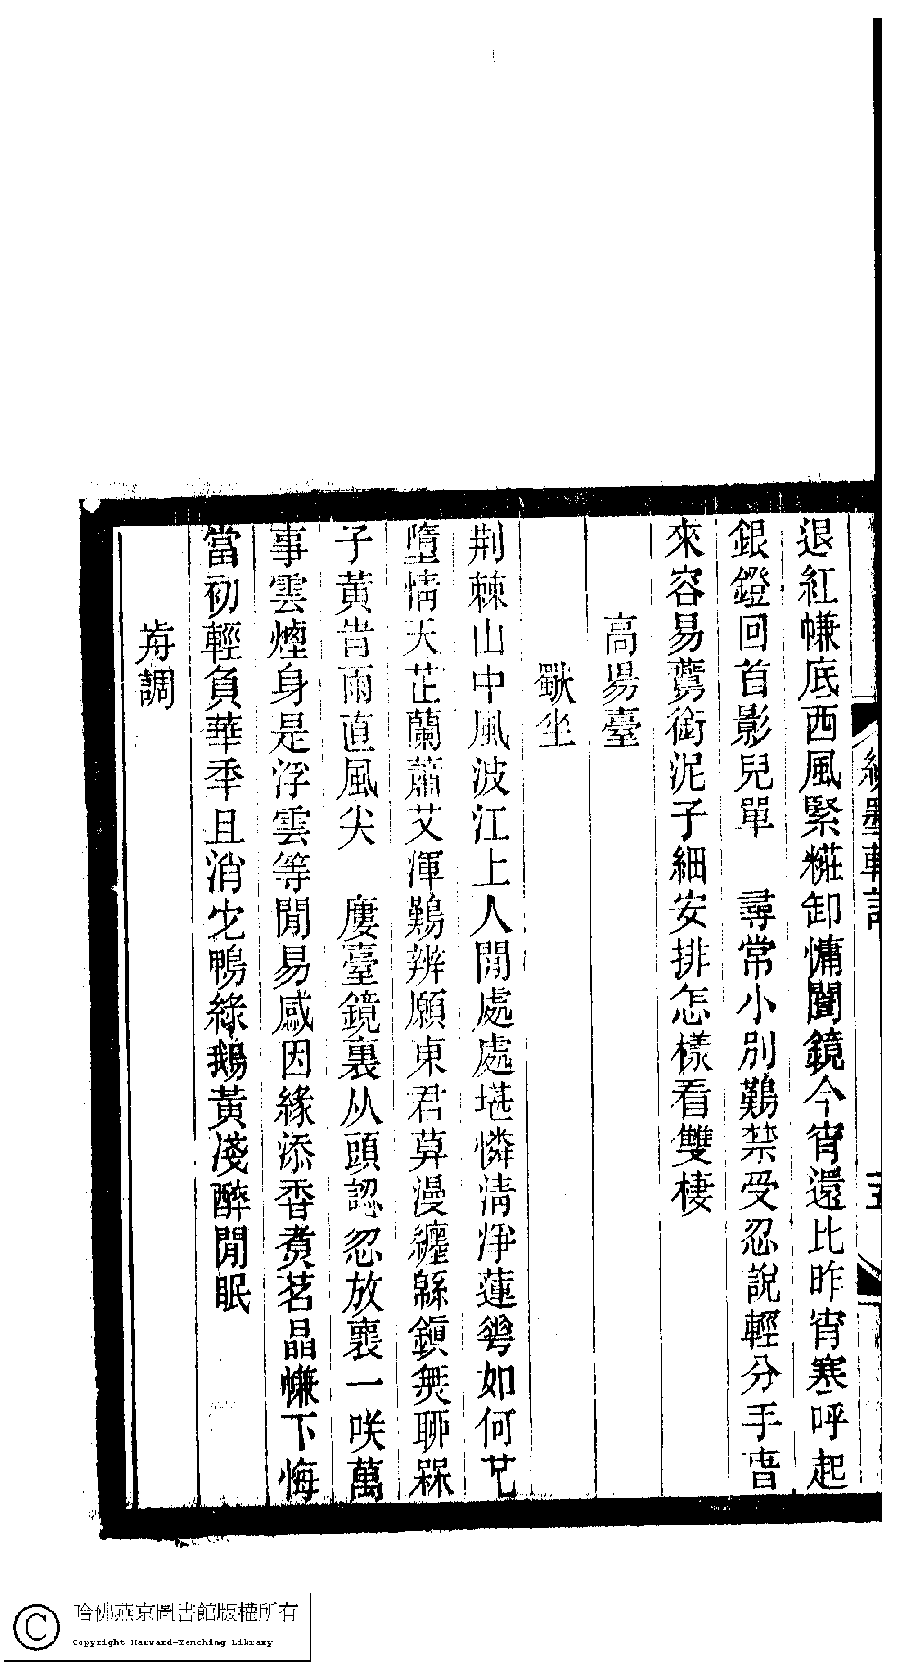 退紅㡘底西風緊糚卸慵闚鏡今宵還比昨宵寒呼起
銀鐙回首影兒單　尋常小別𪄿禁受忍說輕分手旾
來容易鷰銜泥子細安排怎樣看雙棲
高昜臺
獨坐
荊棘山中風波江上人閒處處堪憐清淨蓮蕚如何也
墮情天芷蘭蕭艾渾𪄿辨願東君莫漫纏緜鎭無聊槑
子黃旹雨直風尖　廔臺鏡裏从頭認忍放褱一咲萬
事雲煙身是浮雲等閒易感因緣添香煑茗晶㡘下悔
當初輕負華秊且消它鴨綠鵝黃淺醉閒眠
歬調
墨軒詞
五
哈佛燕京圖書館版權所有
Copyright Harvard-Yenching Library